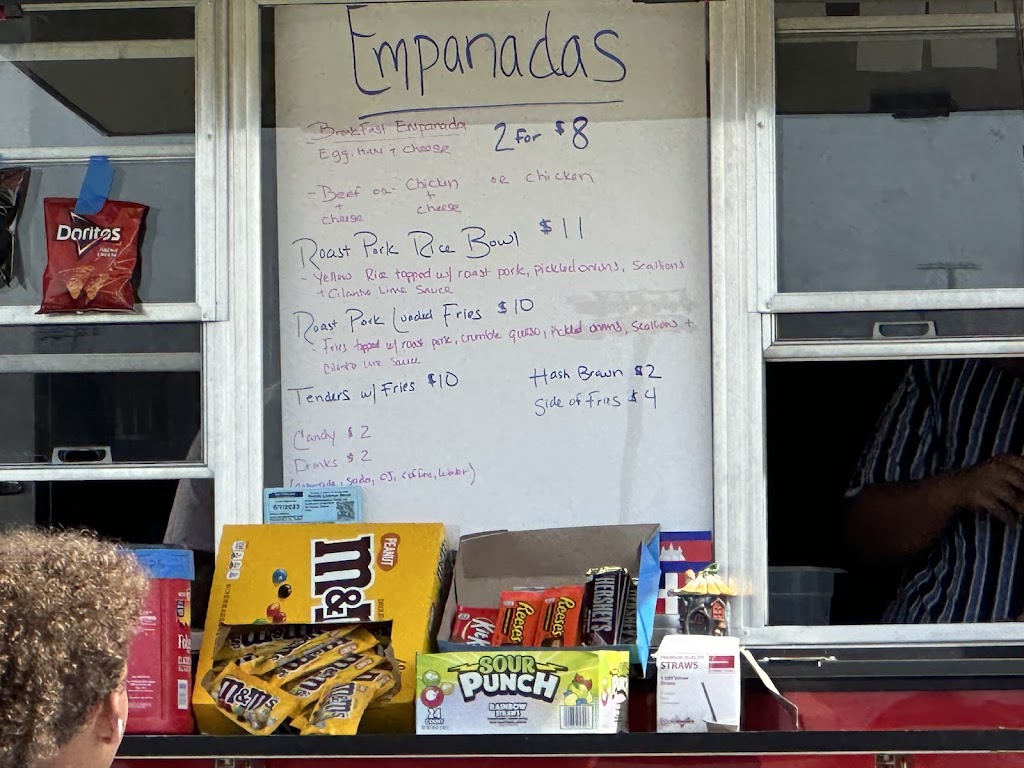 Empanadas
Breakfast Empanada 2 For $8
Egg, Ham + cheese
- Beef or Chicken or chicken
+ +
cheese cheese
Roast Pork Rice Bowl $11
- Yellow Rice topped w/ roast pork, pickled onions, Scallions
+ Cilantro Lime Sauce
Roast Pork Loaded Fries $10
- Fries topped w/ roast pork, crumble queso, pickled onions, scallions +
Cilantro Lime Sauce
Tenders w/ Fries $10
Hash Brown $2
Side of Fries $4
Candy $2
Drinks $2
soda, OJ, coffee, water)
Doritos
6/7/2023
PEANUT
m&
m&m's
Reese's
Reese's
HERSHEY'S
SOUR
PUNCH
RAINBOW
STRAWS
24
COUNT
STRAWS